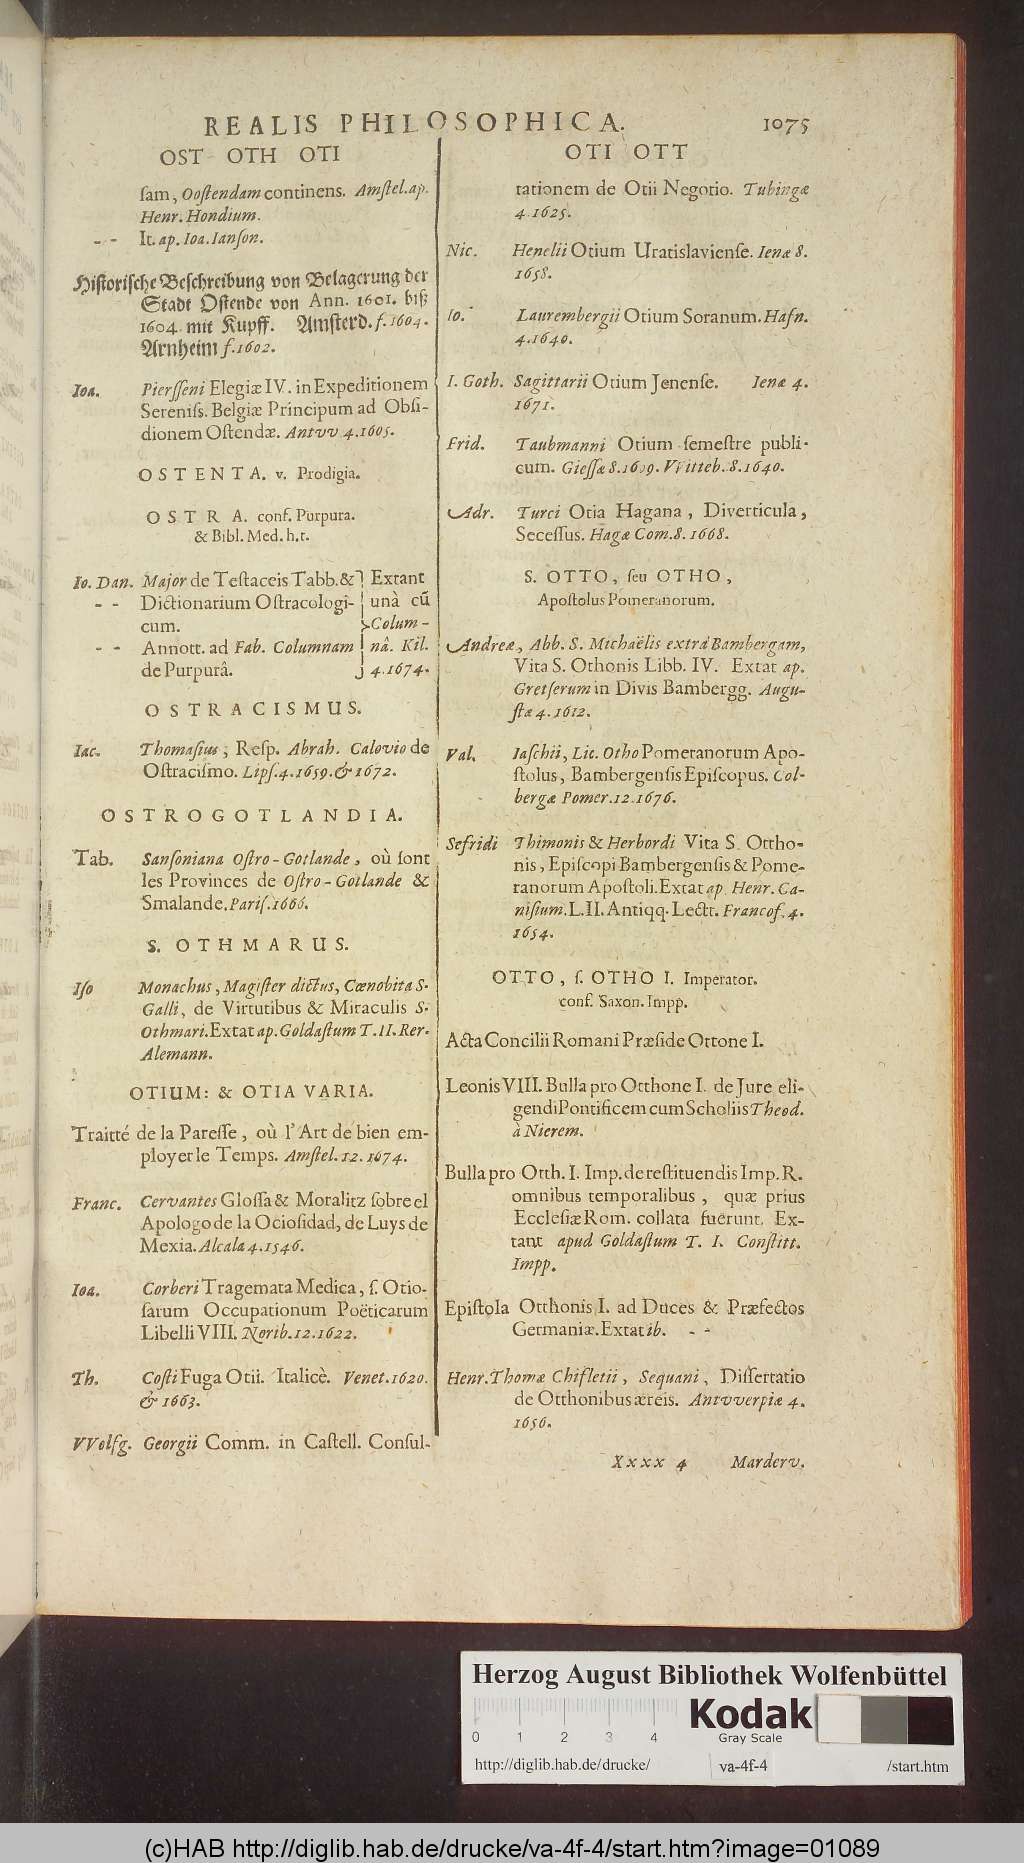 REALIS PHILOSOPHICA. 1075
OST OTH OTI
ſam, Ooſtendam continens. Amſtel. ap.
Henr. Hondium.
- - It. ap. Ioa. Ianſon.
Hiſtoriſche Beſchreibung von Belagerung der
Stadt Oſtende von Ann. 1601. biß
1604. mit Kupff. Amſterd. f. 1604.
Arnheim f. 1602.
Ioa. Pierſſeni Elegiæ IV. in Expeditionem
Sereniſs. Belgiæ Principum ad Obſi-
dionem Oſtendæ. Antvv 4. 1605.
OSTENTA. v. Prodigia.
OSTRA. conf. Purpura.
& Bibl. Med. h. t.
Io. Dan. Major de Teſtaceis Tabb. & } Extant
- - Dictionarium Oſtracologi- unà cũ
cum. Colum-
- - Annott. ad Fab. Columnam nâ. Kil.
de Purpurâ. 4. 1674.
OSTRACISMUS.
Iac. Thomaſius, Reſp. Abrah. Calovio de
Oſtraciſmo. Lipſ. 4. 1659. & 1672.
OSTROGOTLANDIA.
Tab. Sanſoniana Oſtro-Gotlande, où ſont
les Provinces de Oſtro-Gotlande &
Smalande. Pariſ. 1666.
S. OTHMARUS.
Iſo Monachus, Magiſter dictus, Cœnobita S.
Galli, de Virtutibus & Miraculis S.
Othmari. Extat ap. Goldaſtum T. II. Rer.
Alemann.
OTIUM: & OTIA VARIA.
Traitté de la Pareſſe, où l'Art de bien em-
ployer le Temps. Amſtel. 12. 1674.
Franc. Cervantes Gloſſa & Moralitz ſobre el
Apologo de la Ocioſidad, de Luys de
Mexia. Alcala 4. 1546.
Ioa. Corberi Tragemata Medica, ſ. Otio-
ſarum Occupationum Poëticarum
Libelli VIII. Norib. 12. 1622.
Th. Coſti Fuga Otii. Italicè. Venet. 1620.
& 1663.
VVolfg. Georgii Comm. in Caſtell. Conſul-
OTI OTT
tationem de Otii Negotio. Tubingæ
4. 1625.
Nic. Henelii Otium Uratislavienſe. Ienæ 8.
1658.
Io. Laurembergii Otium Soranum. Hafn.
4. 1640.
I. Goth. Sagittarii Otium Jenenſe. Ienæ 4.
1671.
Frid. Taubmanni Otium ſemeſtre publi-
cum. Gieſſæ 8. 1609. VVitteb. 8. 1640.
Adr. Turci Otia Hagana, Diverticula,
Seceſſus. Hagæ Com. 8. 1668.
S. OTTO, ſeu OTHO,
Apoſtolus Pomeranorum.
Andreæ, Abb. S. Michaëlis extra Bambergam,
Vita S. Othonis Libb. IV. Extat ap.
Gretſerum in Divis Bambergg. Augu-
ſtæ 4. 1612.
Val. Iaſchii, Lic. Otho Pomeranorum Apo-
ſtolus, Bambergenſis Epiſcopus. Col-
bergæ Pomer. 12. 1676.
Sefridi Thimonis & Herbordi Vita S. Ottho-
nis, Epiſcopi Bambergenſis & Pome-
ranorum Apoſtoli. Extat ap. Henr. Ca-
niſium. L. II. Antiqq. Lectt. Francof. 4.
1654.
OTTO, ſ. OTHO I. Imperator.
conf. Saxon. Impp.
Acta Concilii Romani Præſide Ottone I.
Leonis VIII. Bulla pro Otthone I. de Jure eli-
gendi Pontificem cum Scholiis Theod.
à Nierem.
Bulla pro Otth. I. Imp. de reſtituendis Imp. R.
omnibus temporalibus, quæ prius
Eccleſiæ Rom. collata fuerunt. Ex-
tant apud Goldaſtum T. I. Conſtitt.
Impp.
Epiſtola Otthonis I. ad Duces & Præfectos
Germaniæ. Extat ib. - -
Henr. Thomæ Chifletii, Sequani, Diſſertatio
de Otthonibus æreis. Antvverpiæ 4.
1656.
Xxxx 4 Marderv.
Herzog August Bibliothek Wolfenbüttel
0 1 2 3 4
Kodak
Gray Scale
http://diglib.hab.de/drucke/ va-4f-4 /start.htm
(c)HAB http://diglib.hab.de/drucke/va-4f-4/start.htm?image=01089